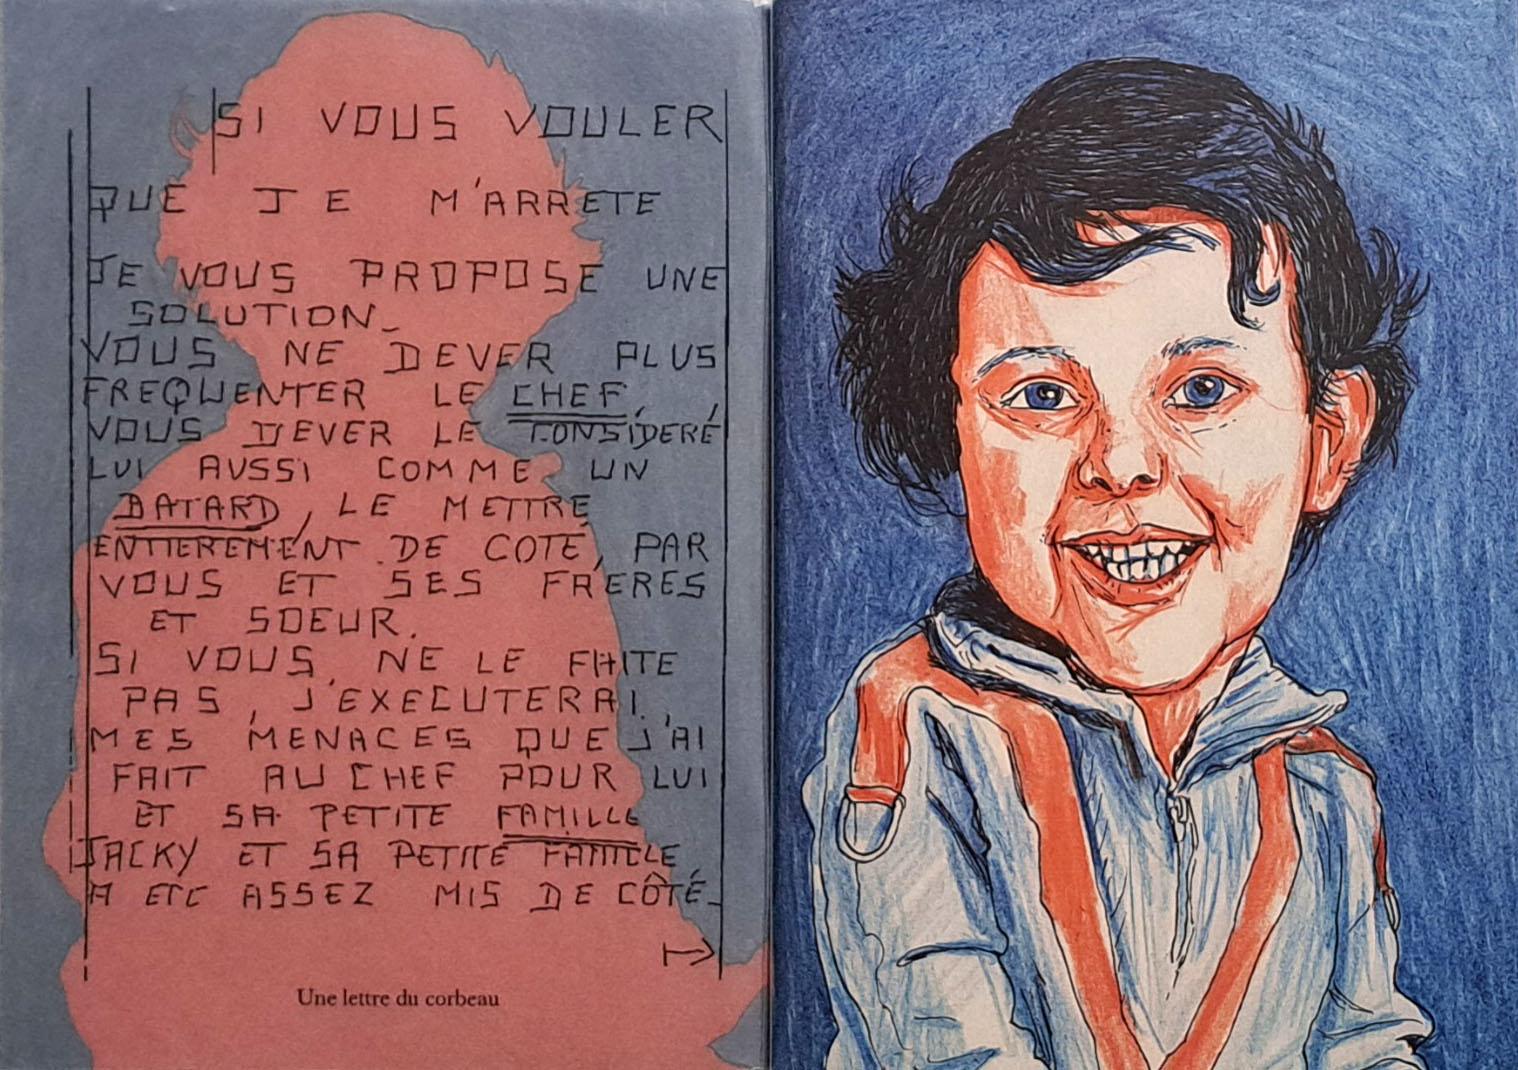 SI VOUS VOULER
QUE JE M'ARRETE
JE VOUS PROPOSE UNE
SOLUTION_
VOUS NE DEVER PLUS
FREQUENTER LE CHEF,
VOUS DEVER LE CONSIDERÉ
LUI AUSSI COMME UN
BATARD, LE METTRE
ENTIEREMENT DE COTÉ, PAR
VOUS ET SES FRERES
ET SOEUR.
SI VOUS NE LE FAITE
PAS, J'EXECUTERAI,
MES MENACES QUE J'AI
FAIT AU CHEF POUR LUI
ET SA PETITE FAMILLE
JACKY ET SA PETITE FAMILLE
A ETE ASSEZ MIS DE CÔTÉ_
Une lettre du corbeau